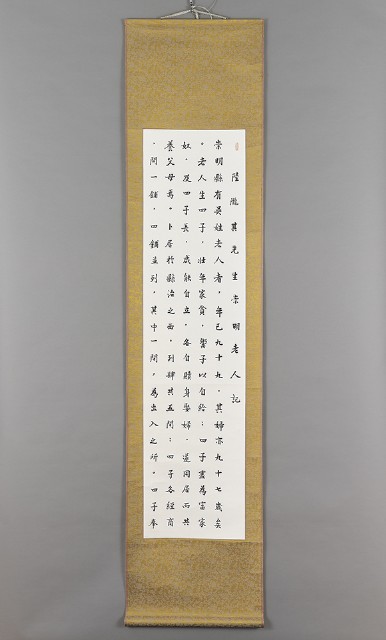 陸隴其先生崇明老人記
崇明縣有吳姓老人者，年已九十九，其婦亦九十七歲矣
。老人生四子，壯年家貧，鬻子以自給；四子盡為富家
奴，及四子長，咸能自立，各自贖身娶婦，遂同居而共
養父母焉。卜居於縣治之西，列肆共五間；四子各經商
，間一鋪，四鋪並列，其中一間，為出入之所，四子奉